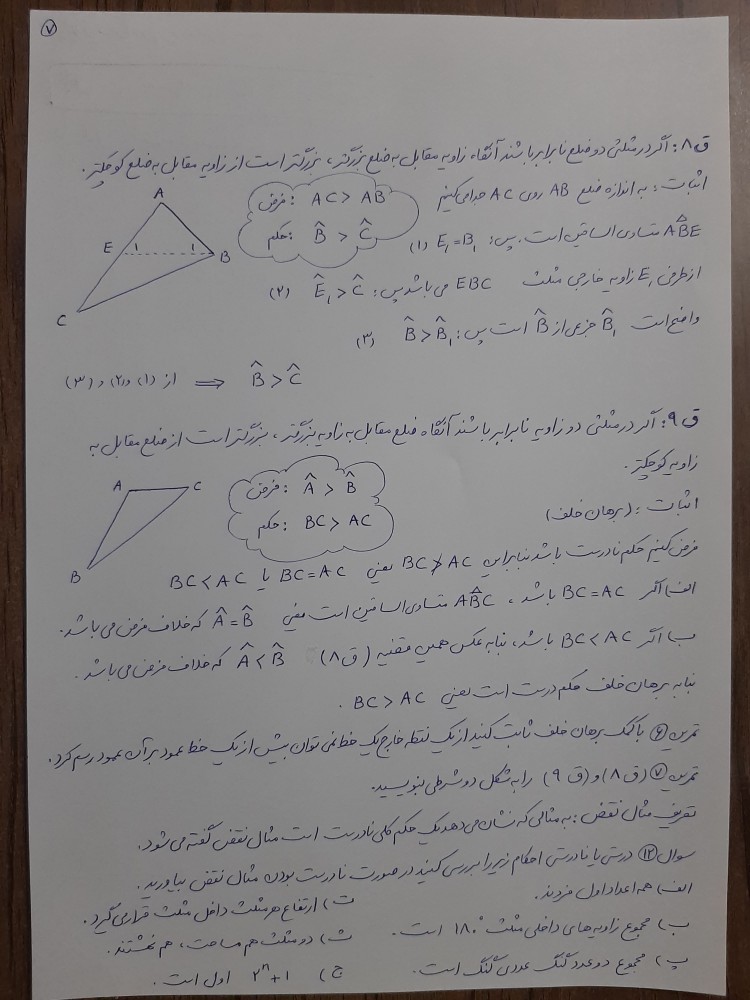 ۷
ق۸: اگر در مثلثی دو ضلع نابرابر باشند آنگاه زاویه مقابل به ضلع بزرگتر، بزرگتر است از زاویه مقابل به ضلع کوچکتر.
اثبات: به اندازه ضلع AB روی AC جدا می‌کنیم
فرض: AC > AB
حکم: B̂ > Ĉ
A
E 1 1 B
C
ABE متساوی الساقین است. پس: E₁=B₁ (۱)
از طرفی E₁ زاویه خارجی مثلث EBC می باشد پس: Ê₁ > Ĉ (۲)
واضح است B̂₁ جزیی از B̂ است پس: B̂ > B̂₁ (۳)
از (۱) و (۲) و (۳) ⟹ B̂ > Ĉ
ق۹: اگر در مثلثی دو زاویه نابرابر باشند آنگاه ضلع مقابل به زاویه بزرگتر، بزرگتر است از ضلع مقابل به
زاویه کوچکتر.
فرض: Â > B̂
حکم: BC > AC
A C
B
اثبات: (برهان خلف)
فرض کنیم حکم نادرست باشد بنابراین BC ≯ AC یعنی BC = AC یا BC < AC
الف) اگر BC = AC باشد، ABC متساوی الساقین است یعنی Â = B̂ که خلاف فرض می باشد.
ب) اگر BC < AC باشد، بنا به عکس همین قضیه (ق۸) Â < B̂ که خلاف فرض می باشد.
بنا به برهان خلف حکم درست است یعنی BC > AC.
تمرین ۶ با کمک برهان خلف ثابت کنید از یک نقطه خارج یک خط نمی توان بیش از یک خط عمود بر آن عمود رسم کرد.
تمرین ۷ (ق۸) و (ق۹) را به شکل دو شرطی بنویسید.
تعریف مثال نقض: به مثالی که نشان می دهد یک حکم کلی نادرست است مثال نقض گفته می شود.
سوال ۱۲ درستی یا نادرستی احکام زیر را بررسی کنید در صورت نادرست بودن مثال نقض بیاورید.
الف) همه اعداد اول فردند.
ب) مجموع زاویه های داخلی مثلث ۱۸۰° است.
پ) مجموع دو عدد گنگ عددی گنگ است.
ت) ارتفاع هر مثلث داخل مثلث قرار می گیرد.
ث) دو مثلث هم مساحت، هم نهشتند.
ج) ۲ⁿ+۱ اول است.